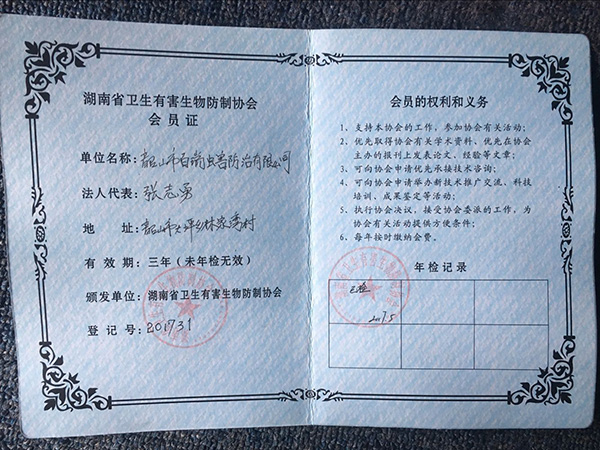 湖南省卫生有害生物防制协会
会员证
单位名称：韶山市百瑞虫害防治有限公司
法人代表：张志勇
地 址：韶山市大坪乡林家湾村
有效期：三年（未年检无效）
颁发单位：湖南省卫生有害生物防制协会
登记号：201731
会员的权利和义务
1、支持本协会的工作，参加协会有关活动；
2、优先取得协会有关学术资料、优先在协会
主办的报刊上发表论文、经验等文章；
3、可向协会申请优先承接技术咨询；
4、可向协会申请举办新技术推广交流、科技
培训、成果鉴定等活动；
5、执行协会决议，接受协会委派的工作，为
协会有关活动提供方便条件；
6、每年按时缴纳会费。
年检记录
已检
2017.5